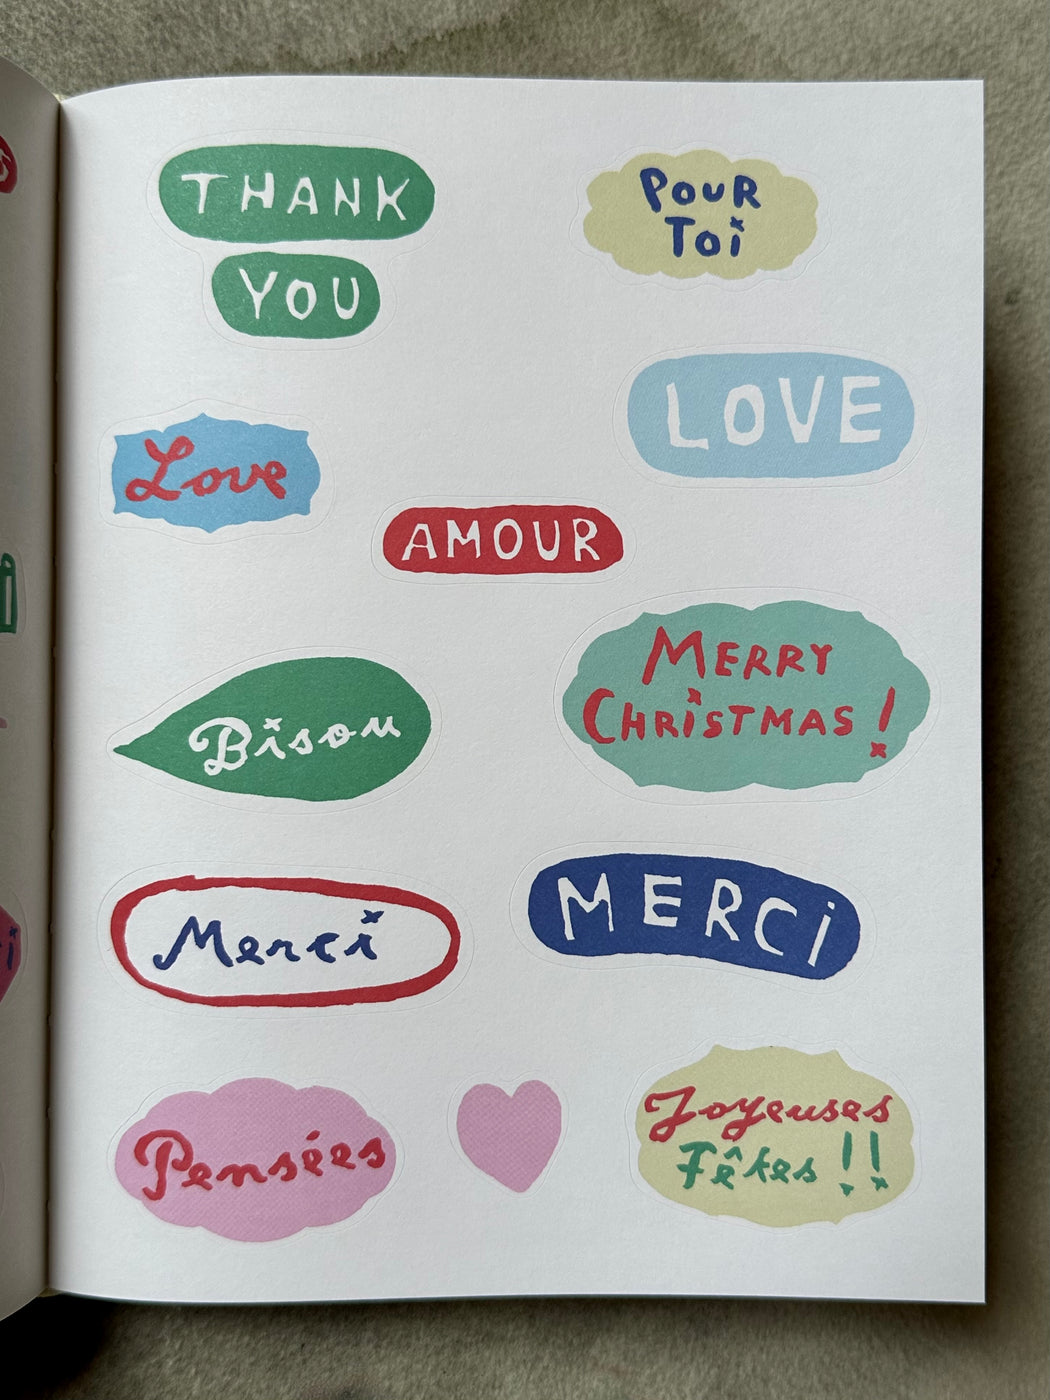 THANK
YOU
POUR
Toi
LOVE
Love
AMOUR
MERRY
CHRiSTMAS !
Bisou
Merci
MERCi
Pensées
Joyeuses
Fêtes !!